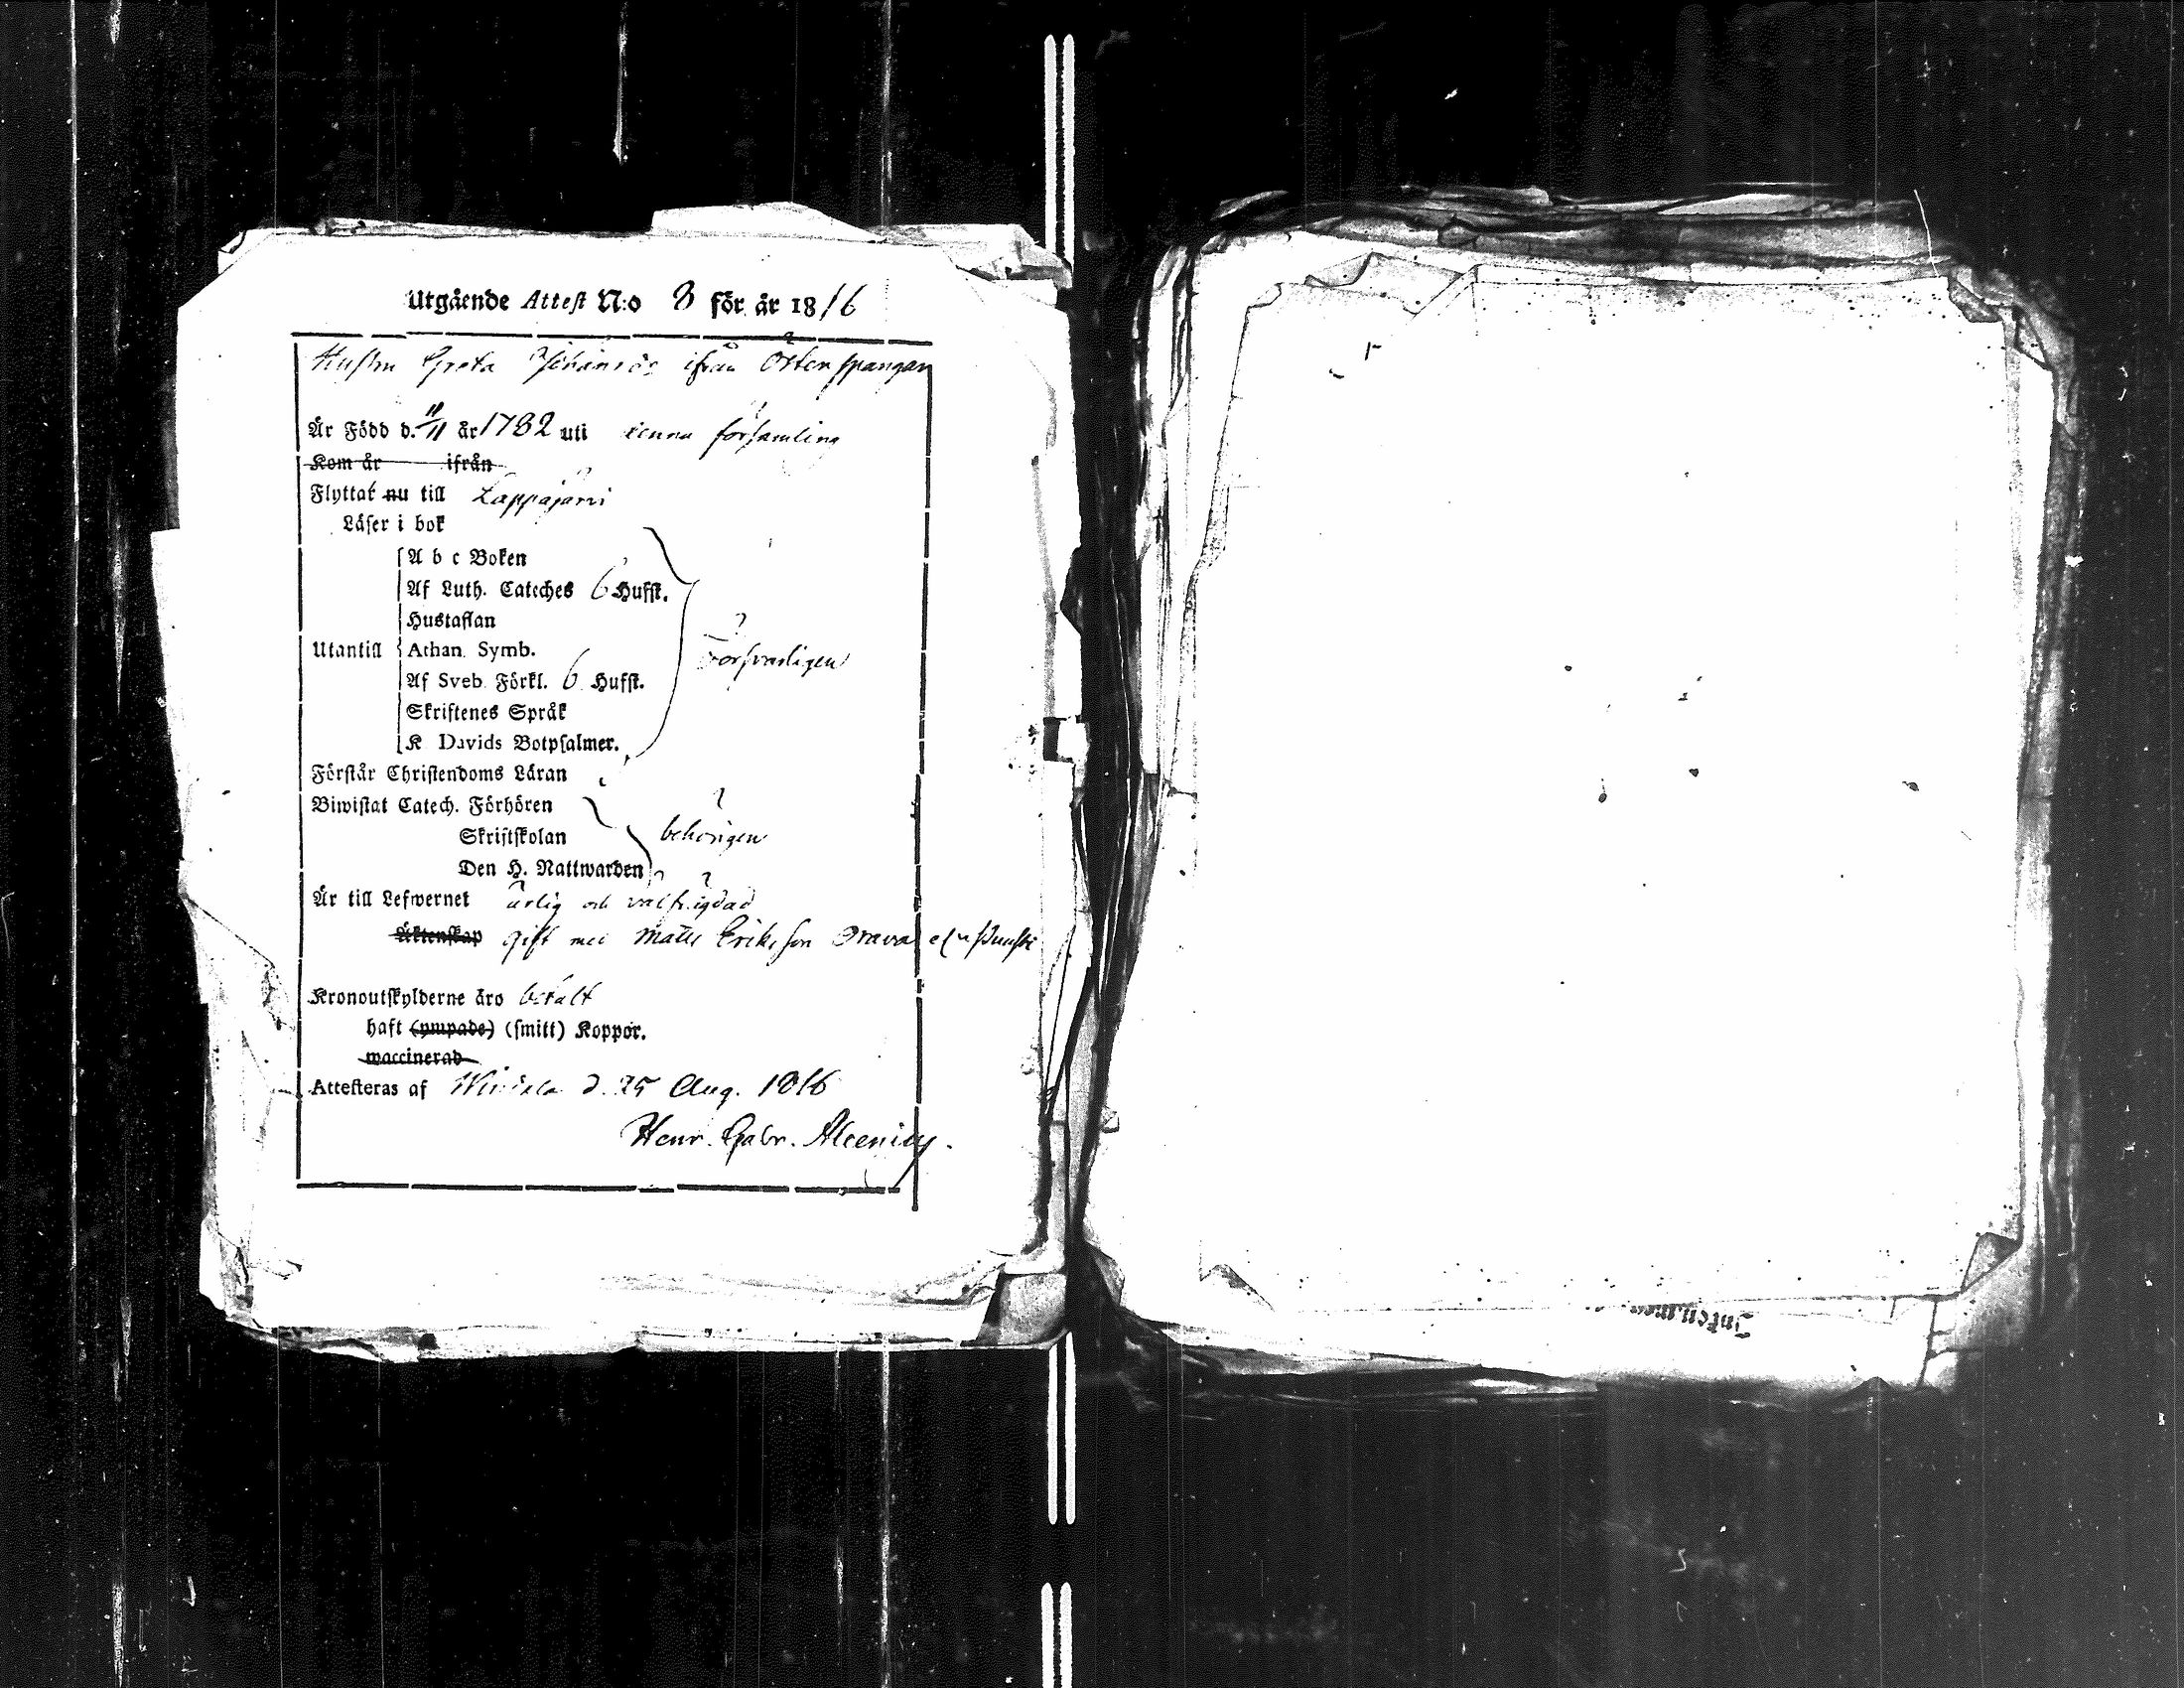 Utgående Attest N:o 8 för år 1816
Hustru Greta Johansdr ifrån Österspangar
År Född d. 11/11 år 1782 uti denna församling
Kom år ifrån
Flyttat nu till Lappajärvi
Läser i bok
A b c Boken
Af Luth. Cateches 6 Hufst.
Hustaflan
Utantill Athan. Symb. Försvarligen
Af Sveb. Förkl. 6 Hufst.
Skriftenes Språk
K. Davids Botpsalmer.
Förstår Christendoms Läran
Biwistat Catech. Förhören
Skriftskolan behörigen
Den H. Nattwarden
Är till Lefwernet ärlig och välfrägdad
Äktenskap gift med Matts Eriksson Orava
Kronoutskylderne äro betalt
haft (ympade) (smitt) Koppor.
waccinerad
Attesteras af Windala d. 25 Aug. 1816
Henr. Gabr. Alcenius.